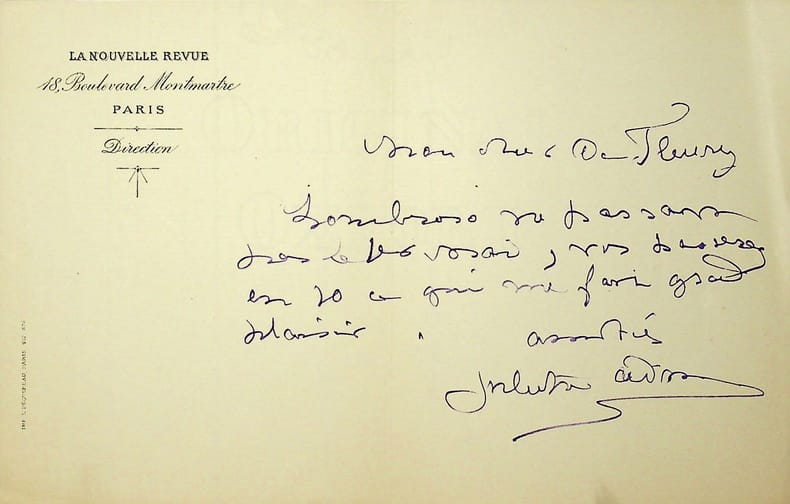 LA NOUVELLE REVUE
18, Boulevard Montmartre
PARIS
Direction
Mon cher De Fleury
Lombroso ne passant
pas le, vos passerez
en 10 ce qui me fait grand
plaisir. amitiés
Juliette Adam